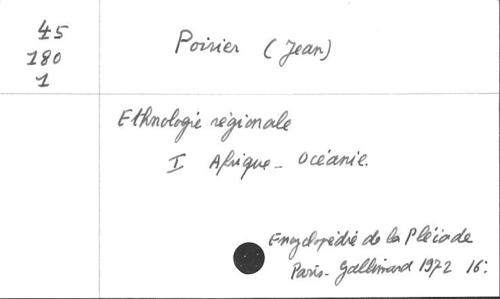 45
180
1
Poirier (Jean)
Ethnologie régionale
I Afrique - Océanie.
Encyclopédie de la Pléiade
Paris - Gallimard 1972 16: